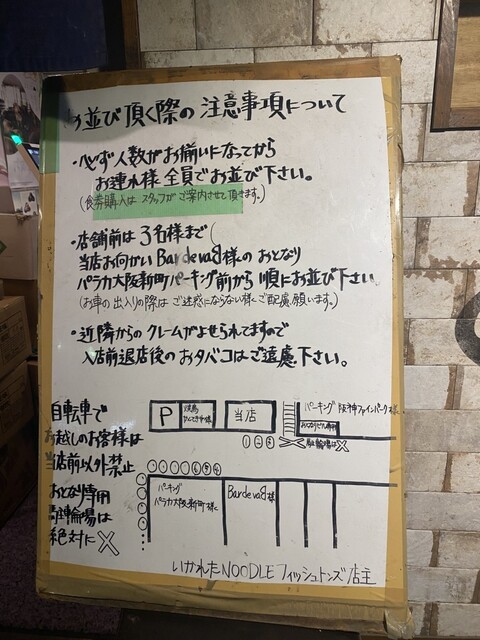 お並び頂く際の注意事項について
・必ず人数がお揃いになってから
お連れ様全員でお並び下さい。
(食券購入はスタッフがご案内させて頂きます。)
・店舗前は3名様まで(
当店お向かいBardeva8様のおとなり
パラカ大阪新町パーキング前から順にお並び下さい
(お車の出入りの際はご迷惑にならない様ご配慮願います。)
・近隣からのクレームがよせられてますので
入店前退店後のおタバコはご遠慮下さい。
自転車で
お越しのお客様は
当店前以外禁止
おとなり専用
駐輪場は
絶対に×
P
当店
パーキング 阪神ファインパーク様
①②③
駐輪場は×
パーキング
パラカ大阪新町様
Bardeva8様
いかれたNOODLEフィッシュトンズ店主